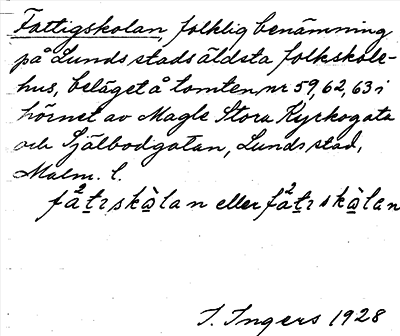 Fattigskolan, folklig benämning
på Lunds stads äldsta folkskole-
hus, beläget å tomten nr 59, 62, 63 i
hörnet av Magle Stora Kyrkogata
och Själbodgatan, Lunds stad,
Malm. l.
fa²tiskòlan eller fa²tiskòlan
I. Ingers 1928